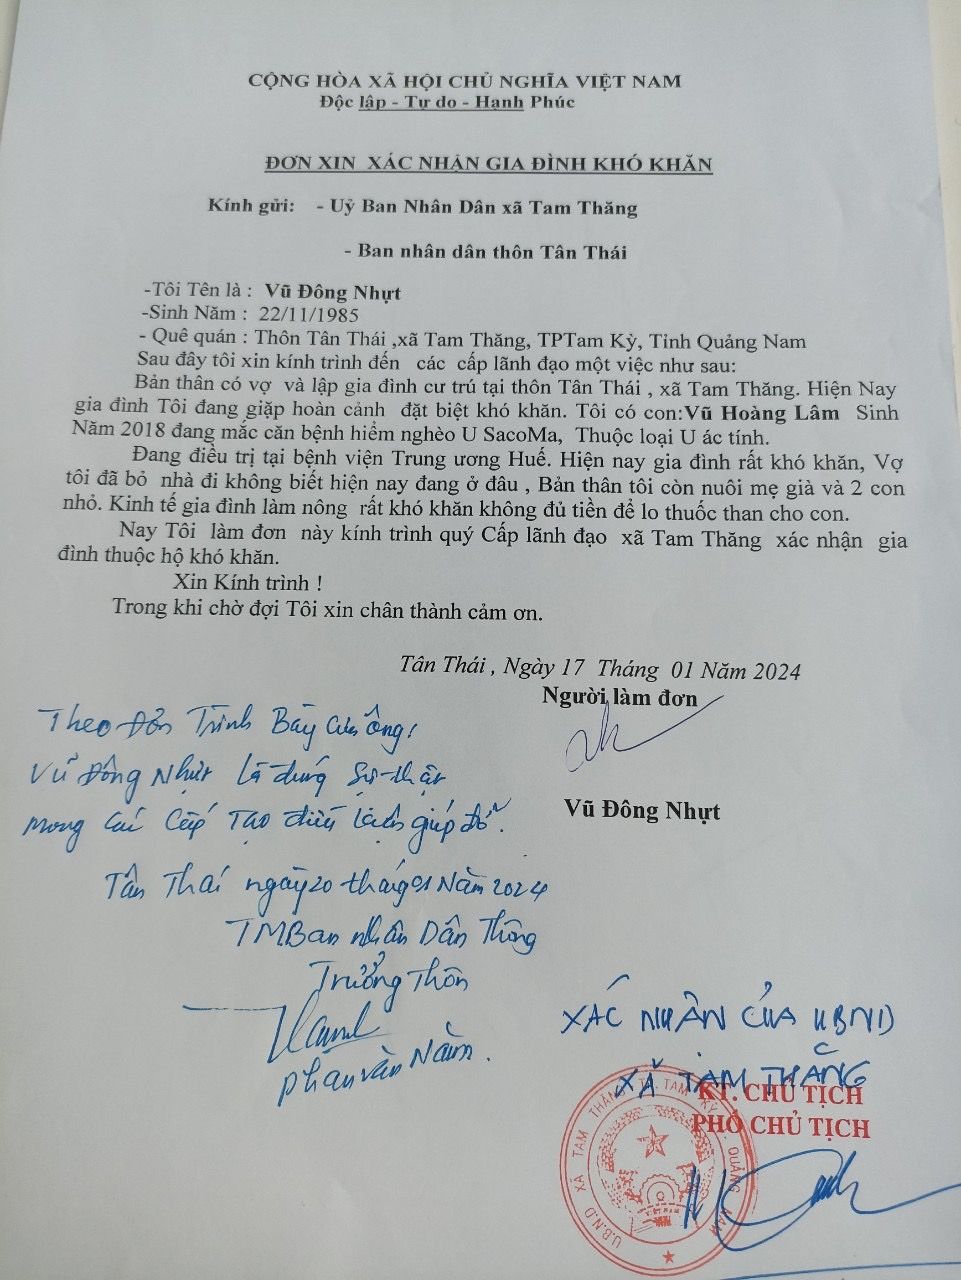 CỘNG HÒA XÃ HỘI CHỦ NGHĨA VIỆT NAM
Độc lập - Tự do - Hạnh Phúc
ĐƠN XIN XÁC NHẬN GIA ĐÌNH KHÓ KHĂN
Kính gửi: - Uỷ Ban Nhân Dân xã Tam Thăng
- Ban nhân dân thôn Tân Thái
-Tôi Tên là : Vũ Đông Nhựt
-Sinh Năm : 22/11/1985
- Quê quán : Thôn Tân Thái ,xã Tam Thăng, TPTam Kỳ, Tỉnh Quảng Nam
Sau đây tôi xin kính trình đến các cấp lãnh đạo một việc như sau:
Bản thân có vợ và lập gia đình cư trú tại thôn Tân Thái , xã Tam Thăng. Hiện Nay
gia đình Tôi đang giặp hoàn cảnh đặt biệt khó khăn. Tôi có con:Vũ Hoàng Lâm Sinh
Năm 2018 đang mắc căn bệnh hiểm nghèo U SacoMa, Thuộc loại U ác tính.
Đang điều trị tại bệnh viện Trung ương Huế. Hiện nay gia đình rất khó khăn, Vợ
tôi đã bỏ nhà đi không biết hiện nay đang ở đâu , Bản thân tôi còn nuôi mẹ già và 2 con
nhỏ. Kinh tế gia đình làm nông rất khó khăn không đủ tiền để lo thuốc than cho con.
Nay Tôi làm đơn này kính trình quý Cấp lãnh đạo xã Tam Thăng xác nhận gia
đình thuộc hộ khó khăn.
Xin Kính trình !
Trong khi chờ đợi Tôi xin chân thành cảm ơn.
Tân Thái , Ngày 17 Tháng 01 Năm 2024
Người làm đơn
Vũ Đông Nhựt
Theo Đơn Trình Bày của ông:
Vũ Đông Nhựt Là đúng Sự thật
mong các Cấp Tạo điều kiện giúp đỡ.
Tân Thái ngày 20 tháng 01 Năm 2024
TM Ban nhân Dân Thông
Trưởng Thôn
Phan Văn Năm.
XÁC NHẬN CỦA UBND
XÃ TAM THĂNG
KT. CHỦ TỊCH
PHÓ CHỦ TỊCH
U.B.N.D XÃ TAM THĂNG TP. TAM KỲ QUẢNG NAM